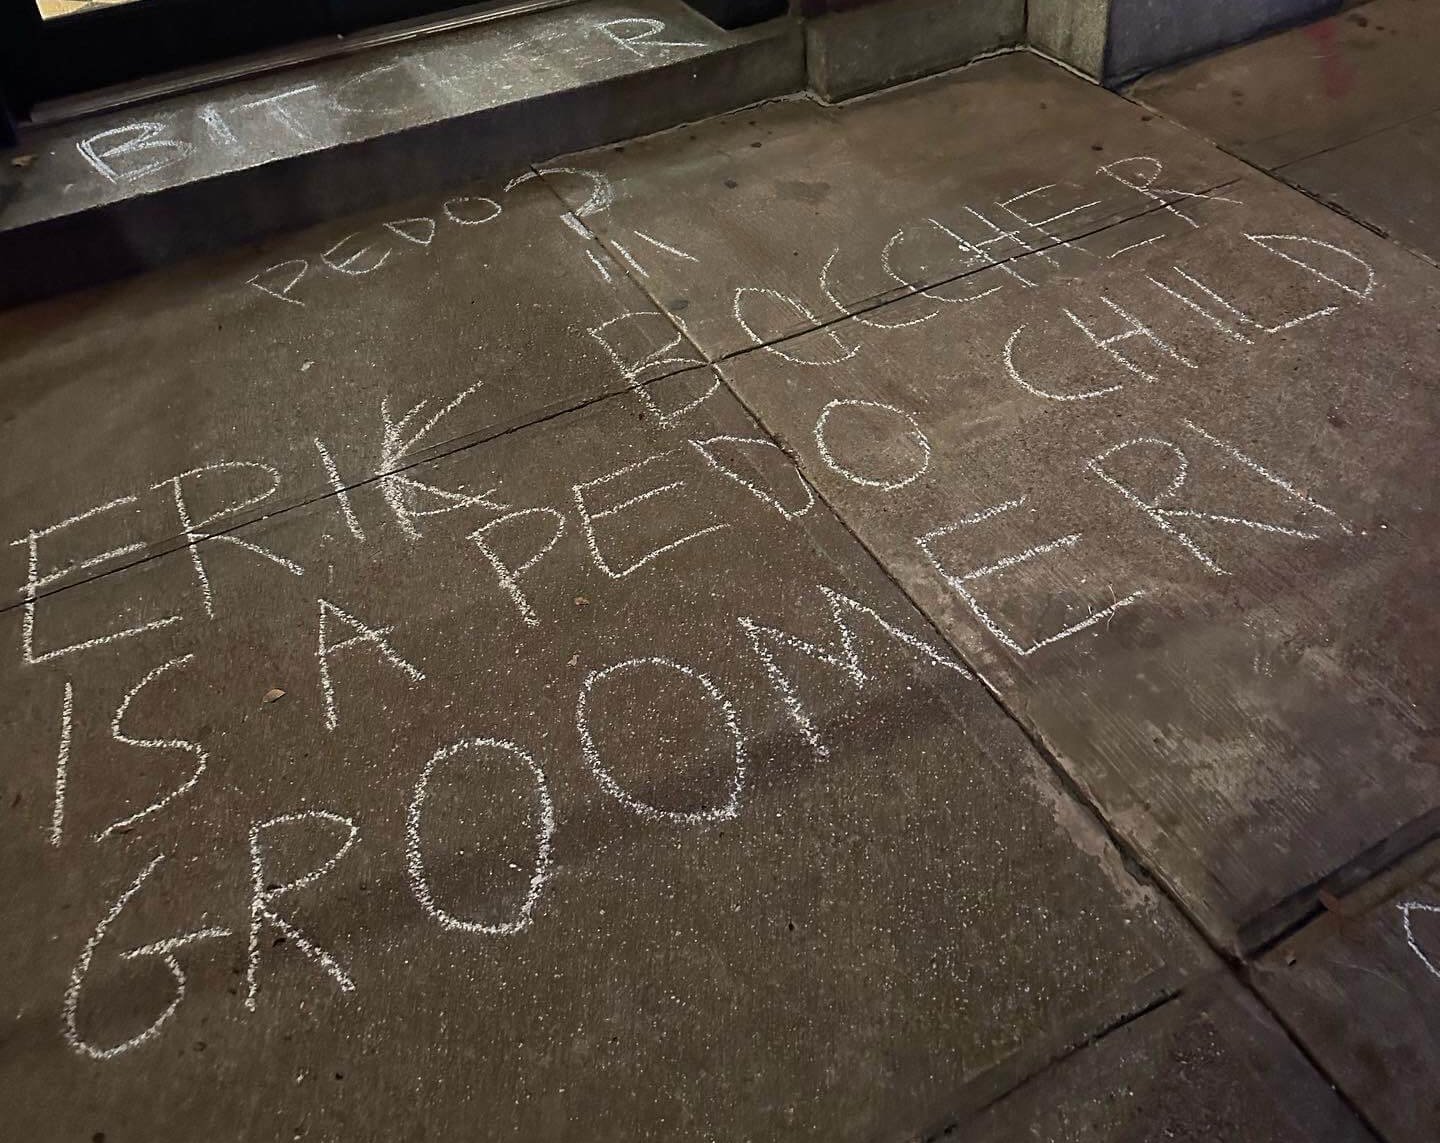 BITCHER
PEDO?
!!!
ERIK BOCCHER
IS A PEDO CHILD
GROOMER!